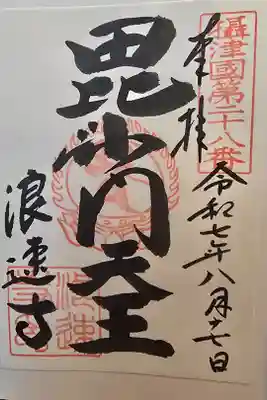 攝津國第二十八番
奉拝
令和七年八月十七日
毘沙門天王
浪速寺